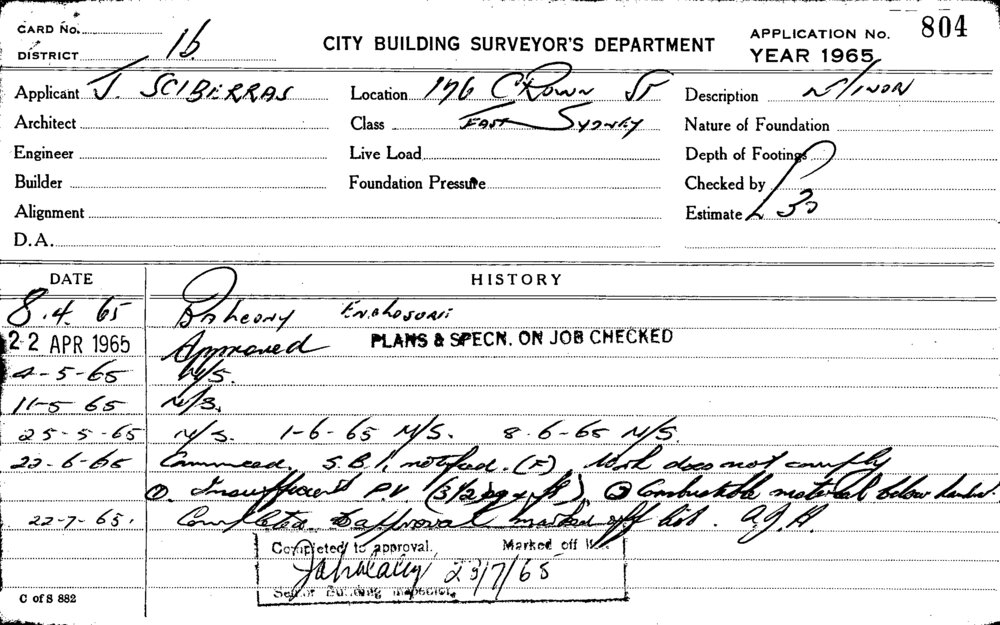 CARD No. 804
DISTRICT 16 CITY BUILDING SURVEYOR'S DEPARTMENT APPLICATION No.
YEAR 1965
Applicant J. SCIBERRAS Location 176 CROWN ST Description MINOR
Architect Class EAST SYDNEY Nature of Foundation
Engineer Live Load Depth of Footings
Builder Foundation Pressure Checked by
Alignment Estimate £ 30
D.A.
DATE HISTORY
8.4.65 Balcony Enclosure
22 APR 1965 Approved PLANS & SPECN. ON JOB CHECKED
4-5-65 N/S.
11-5 65 N/S.
25-5-65 N/S. 1-6-65 N/S. 8-6-65 N/S.
22-6-65 Commenced. S.B.I. notified. (F) Work does not comply
①. Insufficient P.V. ② Combustible material below
22-7-65. Completed to approval marked off list. A.J.H.
Completed to approval. Marked off
23/7/65
Senior Building Inspector
C of S 882